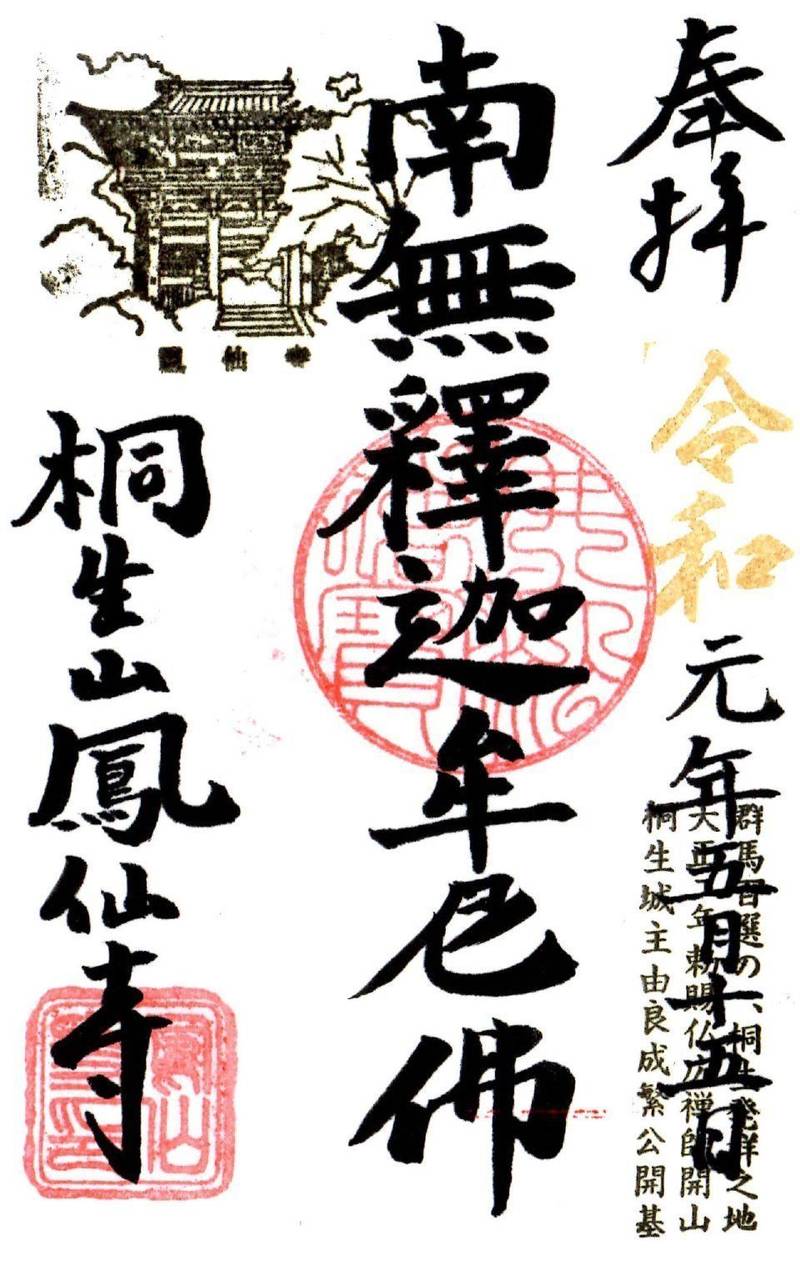 奉拝
令和元年五月十五日
群馬百選の一、桐生発祥之地
天正二年勅賜仏広禅師開山
桐生城主由良成繁公開基
南無釋迦牟尼佛
鳳仙寺
桐生山鳳仙寺